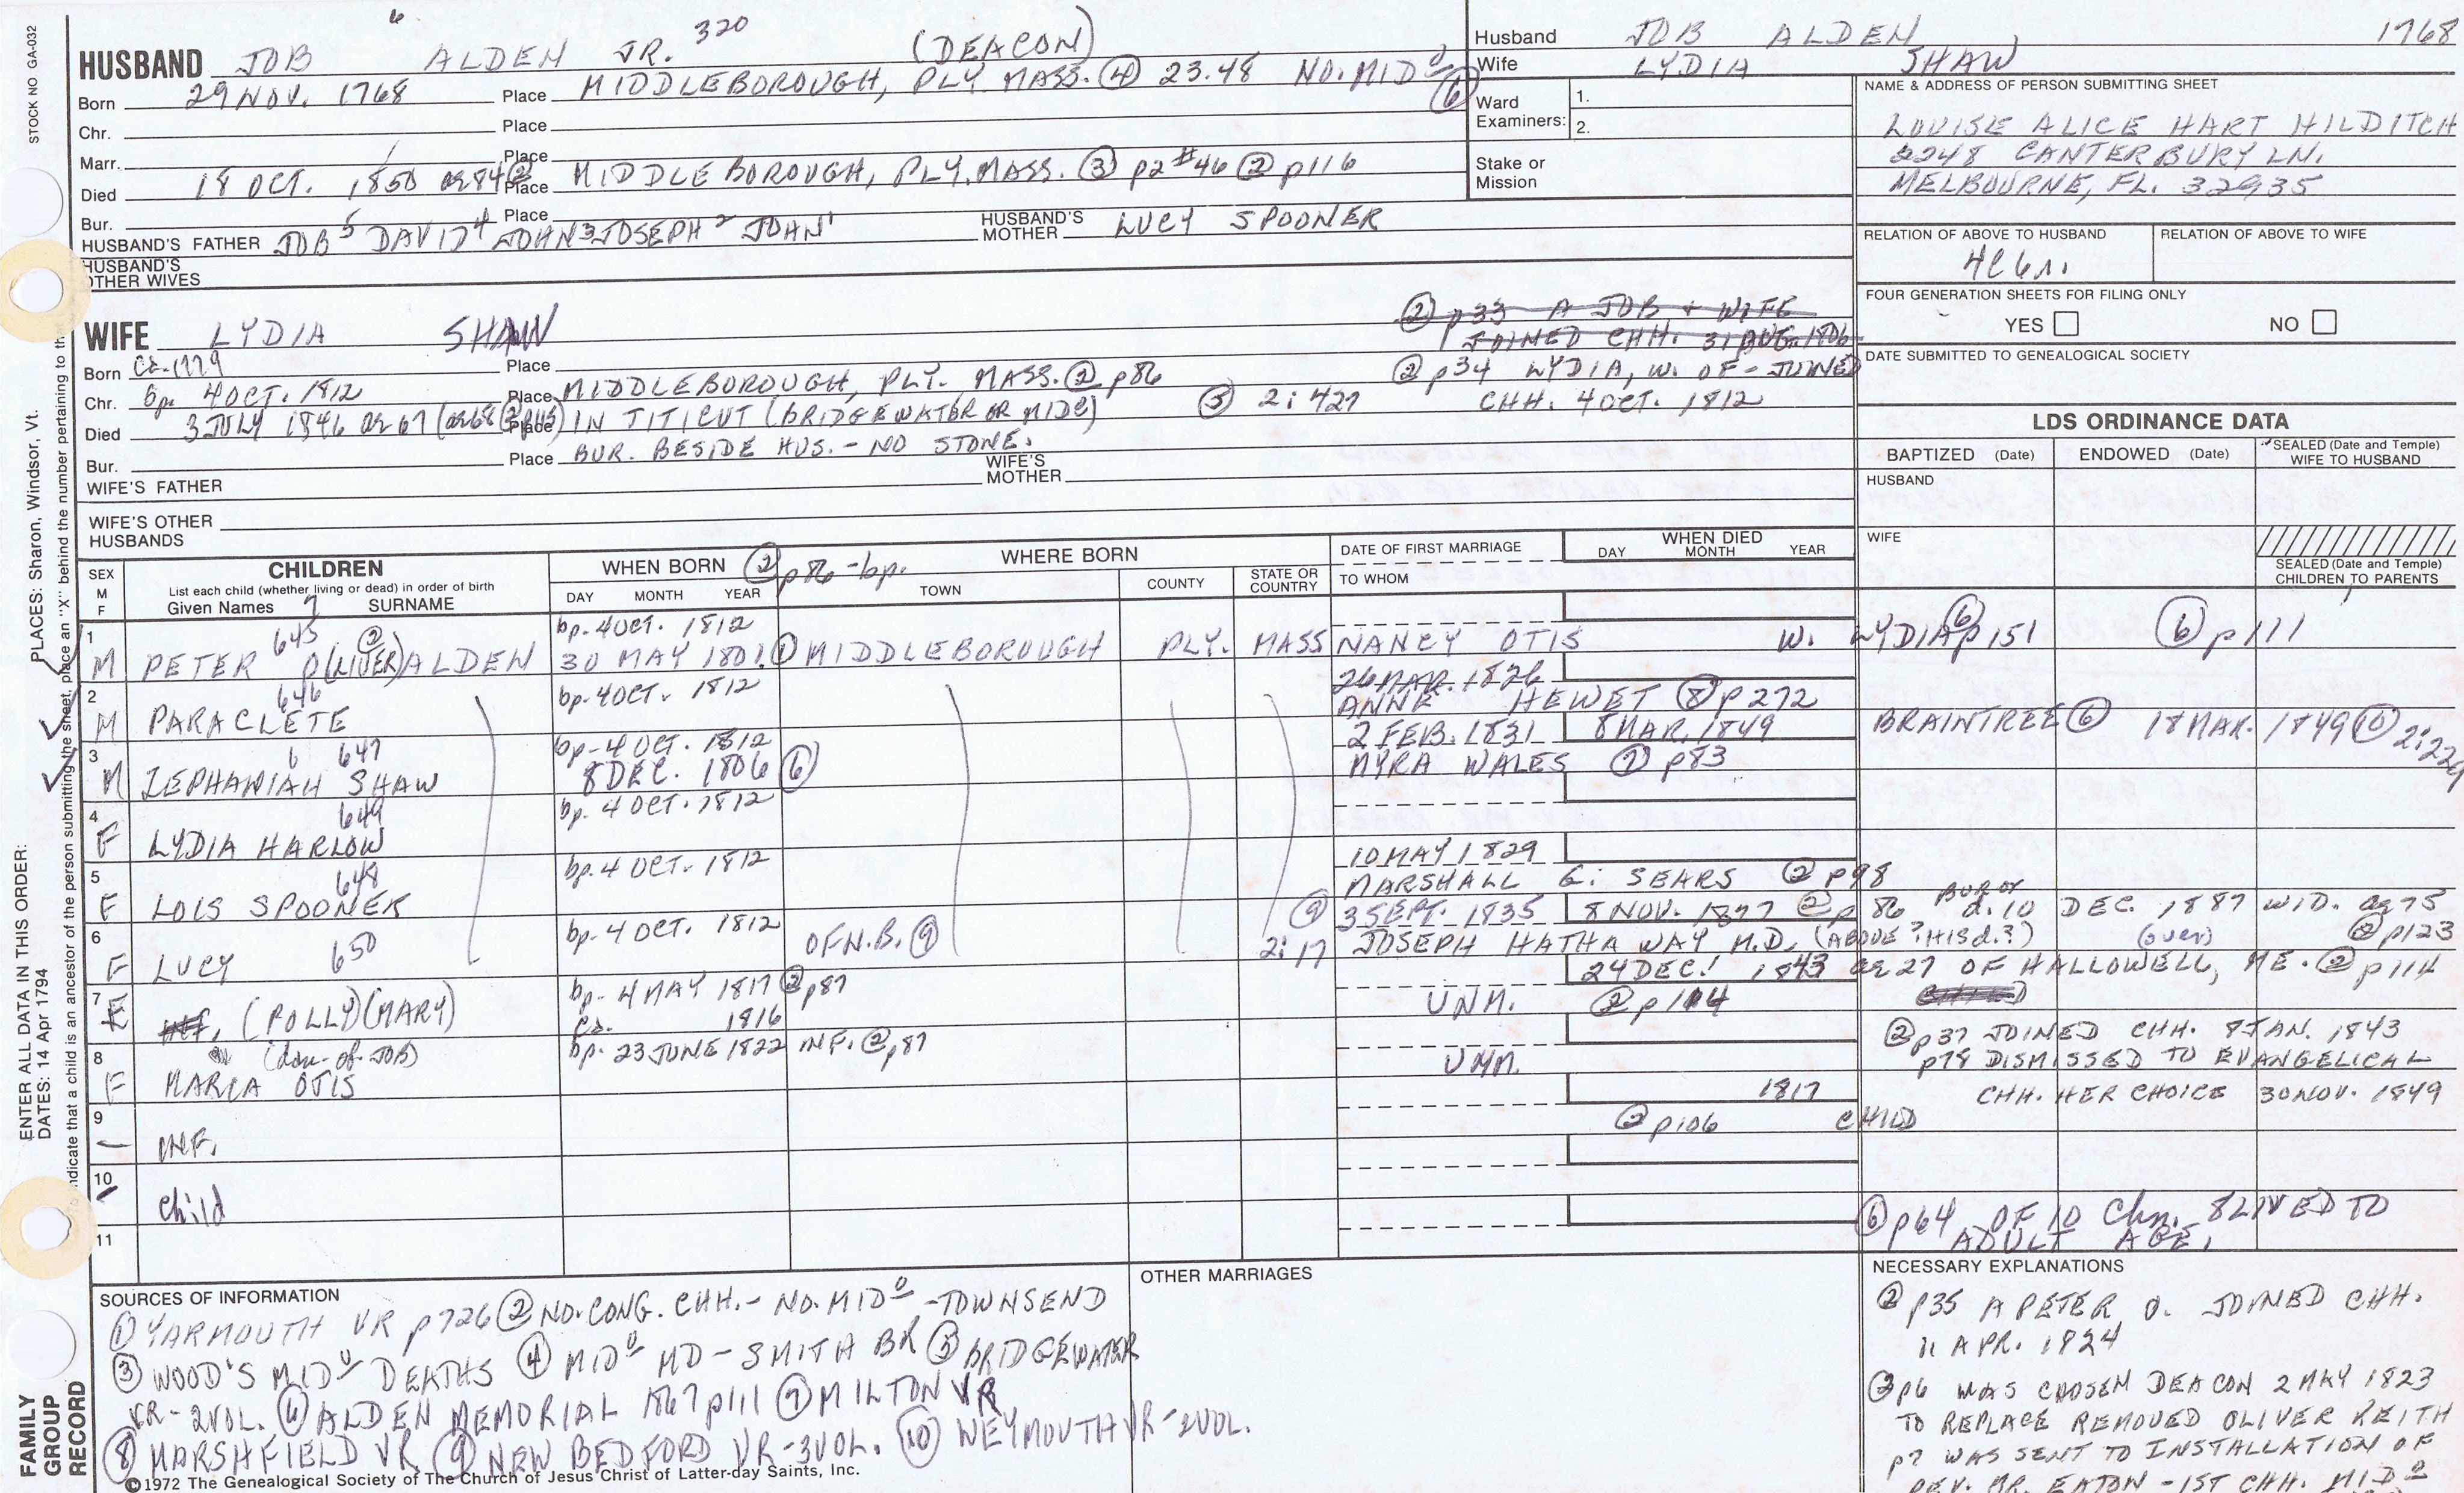 STOCK NO GA-032
HUSBAND JOB 6 ALDEN JR. 320 (DEACON)
Born 29 NOV. 1768 Place MIDDLEBOROUGH, PLY. MASS. ④ 23.48 NO. MIDO ⑥
Chr. Place
Marr. Place
Died 18 OCT. 1850 ae 84 ② Place MIDDLEBOROUGH, PLY. MASS. ③ p2 #46 ② p116
Bur. Place
HUSBAND'S FATHER JOB 5 DAVID 4 JOHN 3 JOSEPH 2 JOHN 1 HUSBAND'S MOTHER LUCY SPOONER
HUSBAND'S OTHER WIVES
WIFE LYDIA SHAW
② p33 A JOB & WIFE
JOINED CHH. 31 AUG. 1806
Born Ca-1779 Place
② p34 LYDIA, W. OF - JOINED
CHH. 4 OCT. 1812
Chr. bp. 4 OCT. 1812 Place MIDDLEBOROUGH, PLY. MASS. ② p86
Died 3 JULY 1846 ae 67 (ae 68 ② p115) Place IN TITICUT (BRIDGEWATER OR MIDO) ⑤ 2:427
Bur. Place BUR. BESIDE HUS. - NO STONE.
WIFE'S FATHER WIFE'S MOTHER
WIFE'S OTHER HUSBANDS
Husband JOB ALDEN 1768
Wife LYDIA SHAW
Ward Examiners: 1.
2.
Stake or Mission
NAME & ADDRESS OF PERSON SUBMITTING SHEET
LOUISE ALICE HART HILDITCH
2248 CANTERBURY LN.
MELBOURNE, FL. 32935
RELATION OF ABOVE TO HUSBAND RELATION OF ABOVE TO WIFE
4C6r.
FOUR GENERATION SHEETS FOR FILING ONLY
YES NO
DATE SUBMITTED TO GENEALOGICAL SOCIETY
LDS ORDINANCE DATA
BAPTIZED (Date) ENDOWED (Date) SEALED (Date and Temple) WIFE TO HUSBAND
HUSBAND
WIFE
SEALED (Date and Temple) CHILDREN TO PARENTS
SEX M F
CHILDREN
List each child (whether living or dead) in order of birth
Given Names 7 SURNAME
WHEN BORN ② p86 - bp.
DAY MONTH YEAR
WHERE BORN
TOWN COUNTY STATE OR COUNTRY
DATE OF FIRST MARRIAGE
TO WHOM
WHEN DIED
DAY MONTH YEAR
1 M PETER 645 O(LIVER) ② ALDEN bp. 4 OCT. 1812
30 MAY 1801 ① MIDDLEBOROUGH PLY. MASS NANCY OTIS W. LYDIA ⑥ p151 ⑥ p111
2 M PARACLETE 646 bp. 4 OCT. 1812 26 MAR. 1826
ANNE HEWET ⑧ p272
3 M ZEPHANIAH 6 647 SHAW bp. 4 OCT. 1812
8 DEC. 1806 ⑥ 2 FEB. 1831 8 MAR. 1849 BRAINTREE ⑥ 18 MAR. 1849 ⑩ 2:229
MYRA WALES ⑦ p83
4 F LYDIA HARLOW 649 bp. 4 OCT. 1812
5 F LOIS SPOONER 648 bp. 4 OCT. 1812 10 MAY 1829
MARSHALL G. SEARS ② p98
6 F LUCY 650 bp. 4 OCT. 1812 OF N.B. ⑨ ⑨ 2:17 3 SEPT. 1835 8 NOV. 1877 ② p86 BUR or d. 10 DEC. 1887 WID. ae 75
JOSEPH HATHAWAY M.D. (ABOVE ? HIS d.?) (over) ② p123
7 F INF. (POLLY) (MARY) bp. 4 MAY 1817 ② p87
Ca. 1816 UNM. 24 DEC. 1843 ae 27 OF HALLOWELL, ME. ② p114
② p104
8 F (dau. of JOB)
MARIA OTIS bp. 23 JUNE 1822 INF. ② p87 UNM.
② p37 JOINED CHH. 8 JAN. 1843
p78 DISMISSED TO EVANGELICAL
CHH. HER CHOICE 30 NOV. 1849
9 INF. 1817
② p106 CHILD
10 Child
11
⑥ p64 OF 10 Chn. 8 LIVED TO
ADULT AGE.
SOURCES OF INFORMATION
① YARMOUTH VR p726 ② NO. CONG. CHH. - NO. MIDO - TOWNSEND
③ WOOD'S MIDO DEATHS ④ MIDO MD - SMITH BR ⑤ BRIDGEWATER
VR - 2 VOL. ⑥ ALDEN MEMORIAL 1867 p111 ⑦ MILTON VR
⑧ MARSHFIELD VR ⑨ NEW BEDFORD VR - 3 VOL. ⑩ WEYMOUTH VR - 2 VOL.
OTHER MARRIAGES
NECESSARY EXPLANATIONS
② p35 A PETER O. JOINED CHH.
11 APR. 1824
② p6 WAS CHOSEN DEACON 2 MAY 1823
TO REPLACE REMOVED OLIVER KEITH
p7 WAS SENT TO INSTALLATION OF
REV. MR. EATON - 1ST CHH. MIDO
©1972 The Genealogical Society of The Church of Jesus Christ of Latter-day Saints, Inc.
FAMILY GROUP RECORD
ENTER ALL DATA IN THIS ORDER:
DATES: 14 Apr 1794
PLACES: Sharon, Windsor, Vt.
To indicate that a child is an ancestor of the person submitting the sheet, place an "X" behind the number pertaining to th